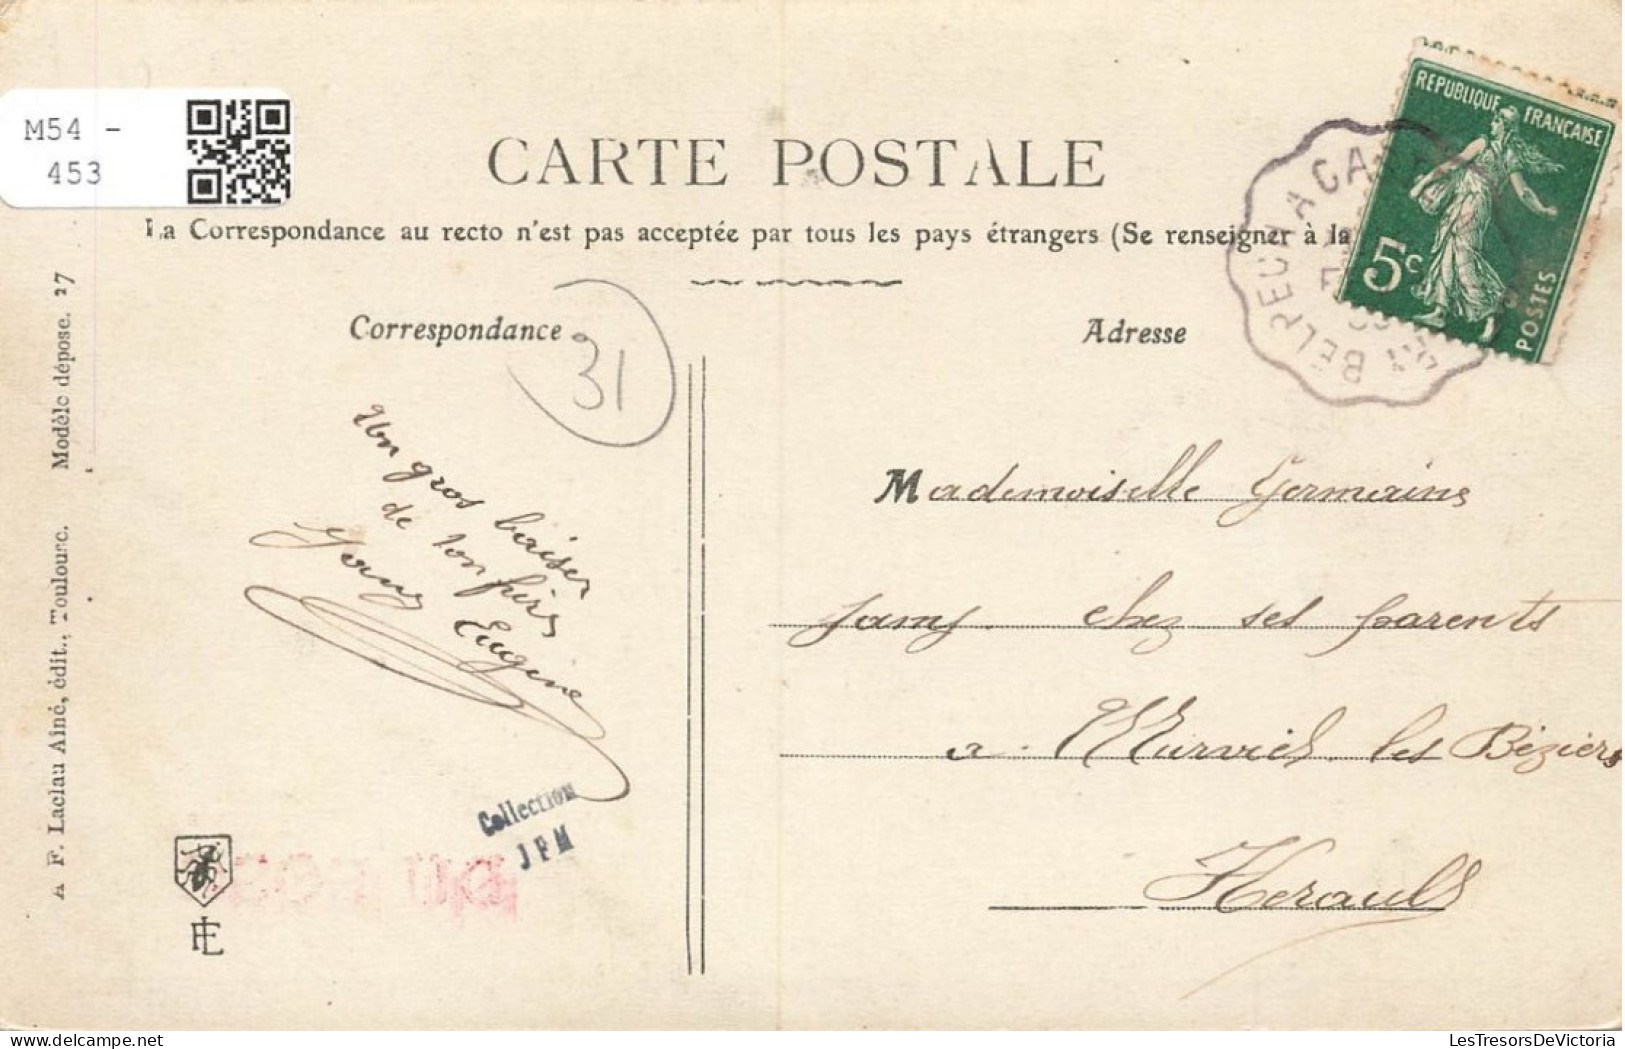 M54 -
453
CARTE POSTALE
La Correspondance au recto n'est pas acceptée par tous les pays étrangers (Se renseigner à la
REPUBLIQUE FRANÇAISE
5c
POSTES
BELPECH A CA
Correspondance
31
Adresse
Un gros baiser
de ton frère
Jamy Eugène
Mademoiselle Germaine
Jamy. chez ses parents
a. Murviel les Béziers
Herault
Collection
JPM
A F. Laclau Ainé, édit., Toulouse. Modèle déposé. 27
LesTresorsDeVictoria
delcampe.net